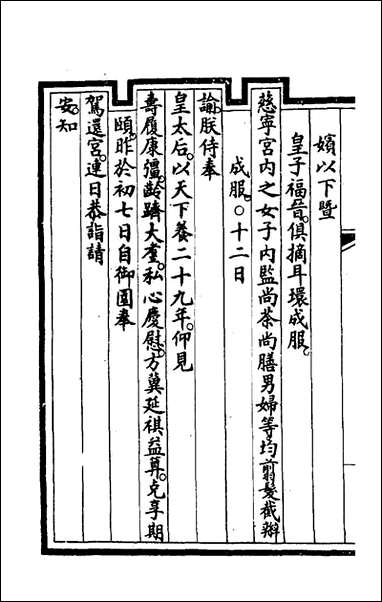 嬪以下暨
皇子福晉。俱摘耳環成服。
慈寧宮内之女子内監尚茶尚膳男婦等均翦髮截辮
成服。○十二日
諭。朕侍奉
皇太后。以天下養二十九年。仰見
壽履康彊。齡躋大耋。私心慶慰。方冀延祺益算。克享期
頤。昨於初七日自御園奉
駕還宮。連日恭詣請
安。知